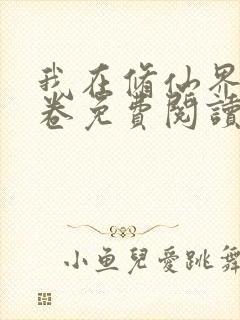 我在脩仙界
卷免費閱讀
小魚兒愛跳舞